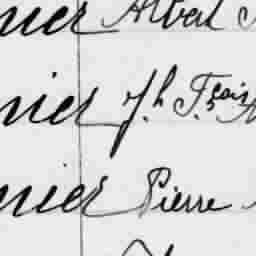 nier Albert
nier J.h F.çois
nier Pierre